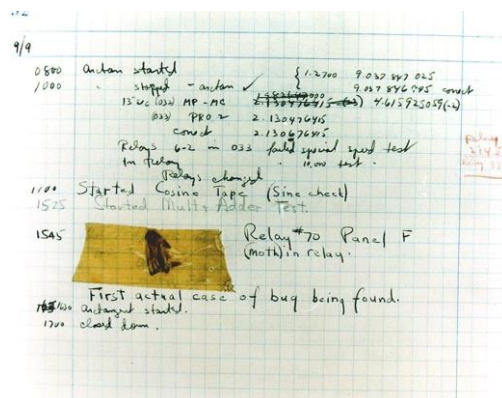 9/9
0800 Antan started { 1.2700 9.037 847 025
1000 " stopped - antan ✓ 9.037 846 995 conect
13" uc (032) MP - MC 2.130476415 4.615925059(-2)
(033) PRO 2 2.130476415
conect 2.130676415
Relays 6-2 in 033 failed special speed test
in relay " 10,000 test.
Relays changed
1100 Started Cosine Tape (Sine check)
1525 Started Mult+Adder Test.
1545 Relay #70 Panel F
(moth) in relay.
First actual case of bug being found.
1630 antangent started.
1700 closed down.